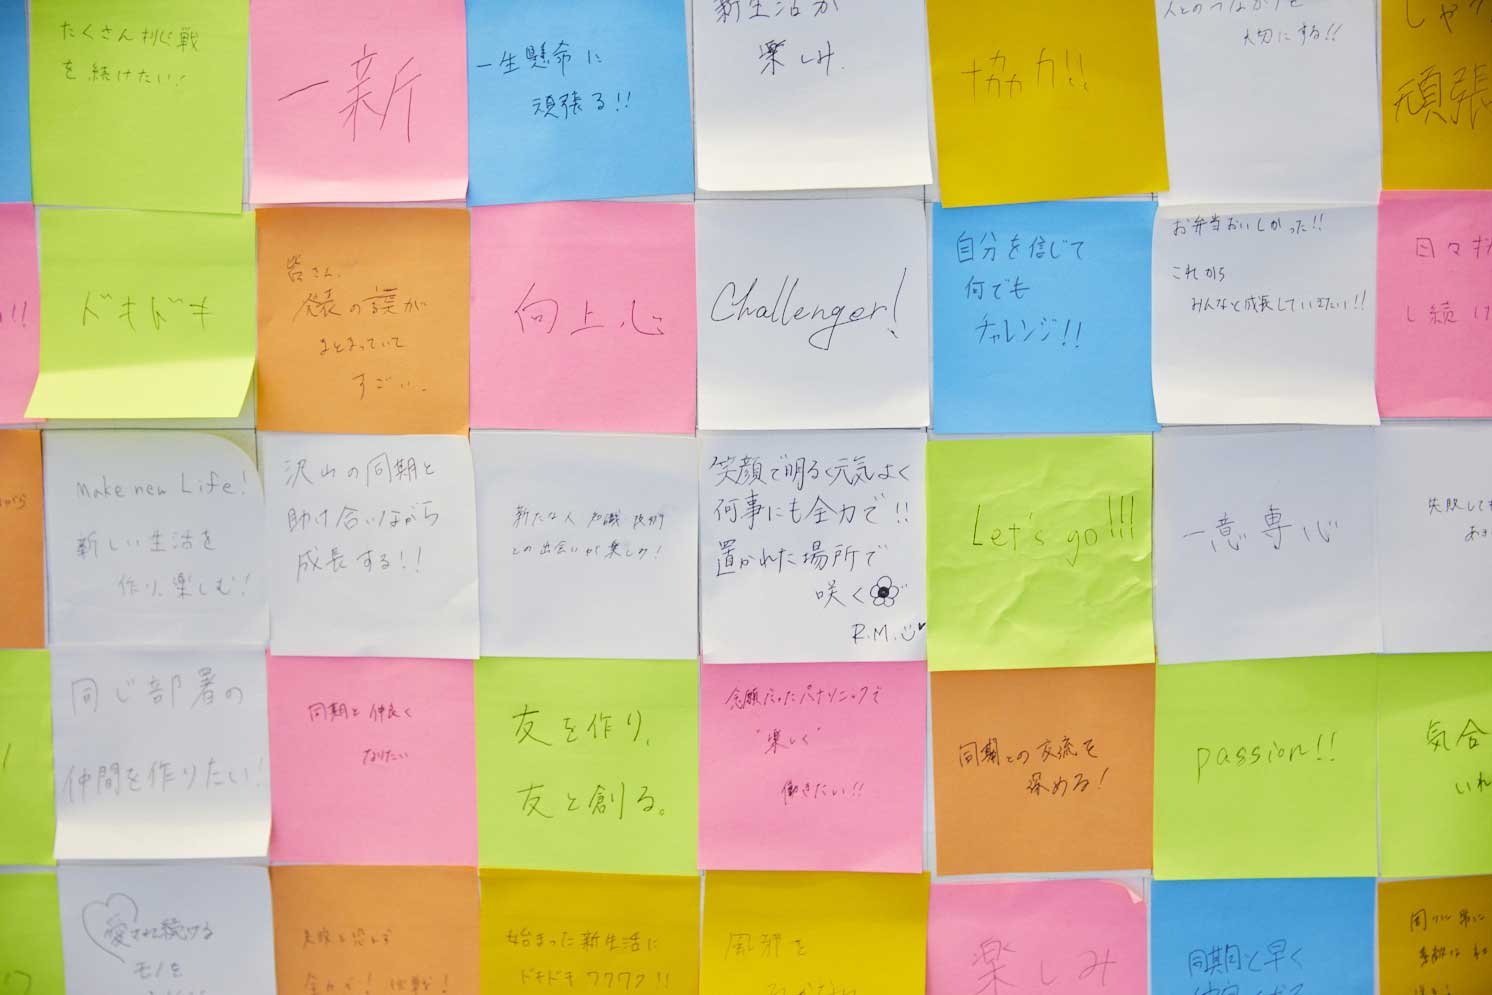 たくさん挑戦
を続けたい!
一新
一生懸命に
頑張る!!
新生活が
楽しみ.
協力!!
人とのつながりを
大切にする!!
頑張
ドキドキ
皆さん、
発表の議が
まとまっていて
すごい..
向上心
Challenger!
自分を信じて
何でも
チャレンジ!!
お弁当おいしかった!!
これから
みんなと成長していきたい!!
日々
し続け
make new Life!
新しい生活を
作り、楽しむ!
沢山の同期と
助け合いながら
成長する!!
新たな人 知識 技術
との出会いが楽しみ!
笑顔で明るく元気よく
何事にも全力で!!
置かれた場所で
咲く
R.M.
Let's go!!!
一意専心
失敗しても
同じ部署の
仲間を作りたい!
同期と仲良く
なりたい
友を作り、
友と創る。
念願だったパナソニックで
"楽しく"
働きたい!!
同期との交流を
深める!
passion!!
気合
いれ
愛され続ける
モノを
失敗を恐れず
全力で!挑戦!
始まった新生活に
ドキドキワクワク!!
楽しみ
同期と早く